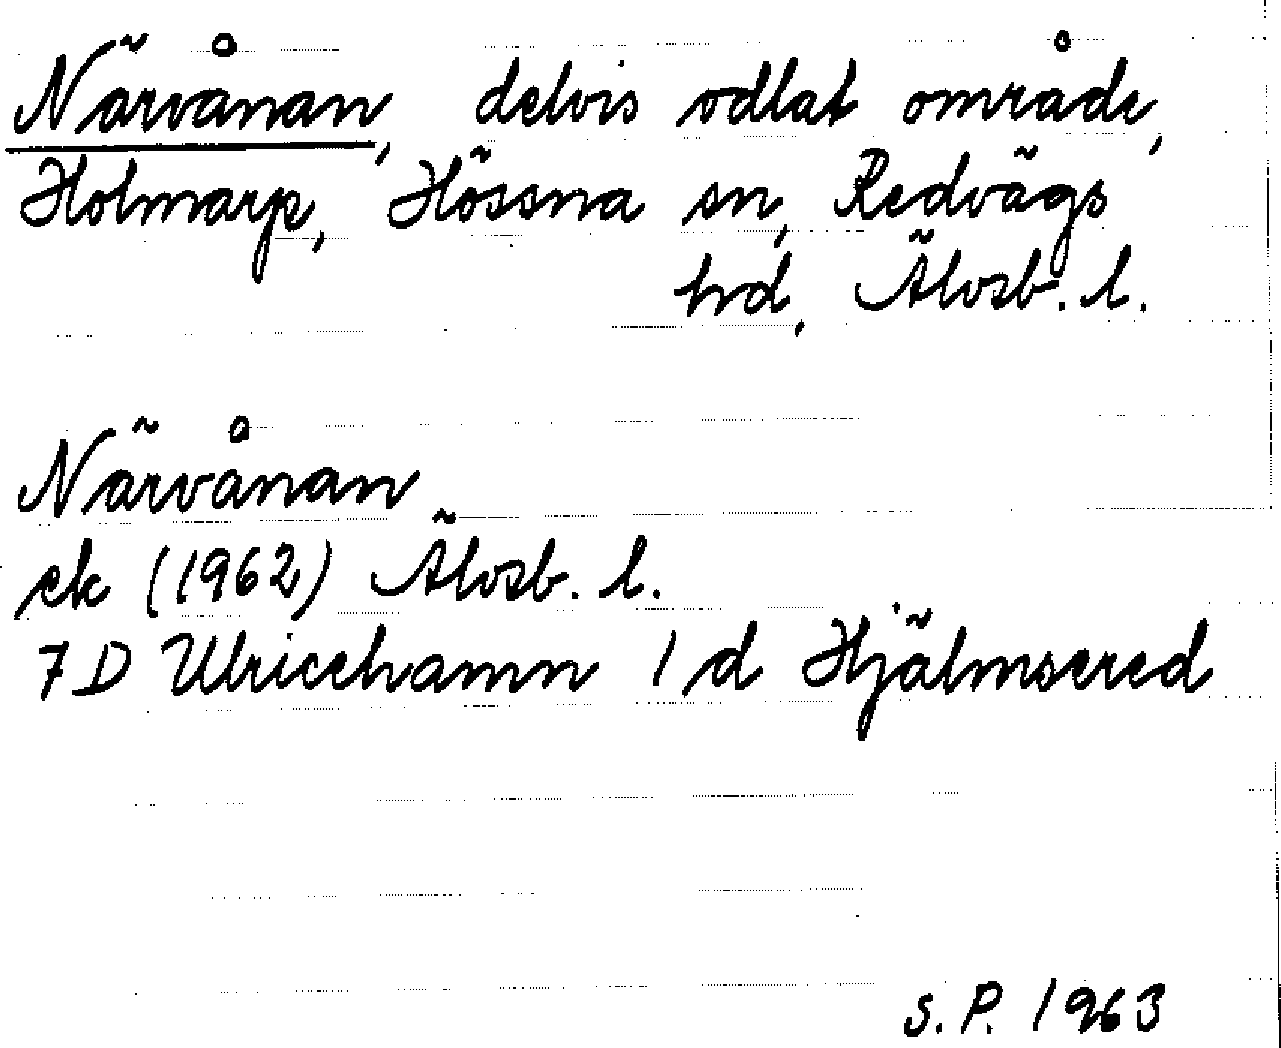 Närvånan, delvis odlat område,
Holmarp, Hössna sn, Redvägs
hrd, Älvsb. l.
Närvånan
ek (1962) Älvsb. l.
7D Ulricehamn 1d Hjälmsered
S. P. 1963